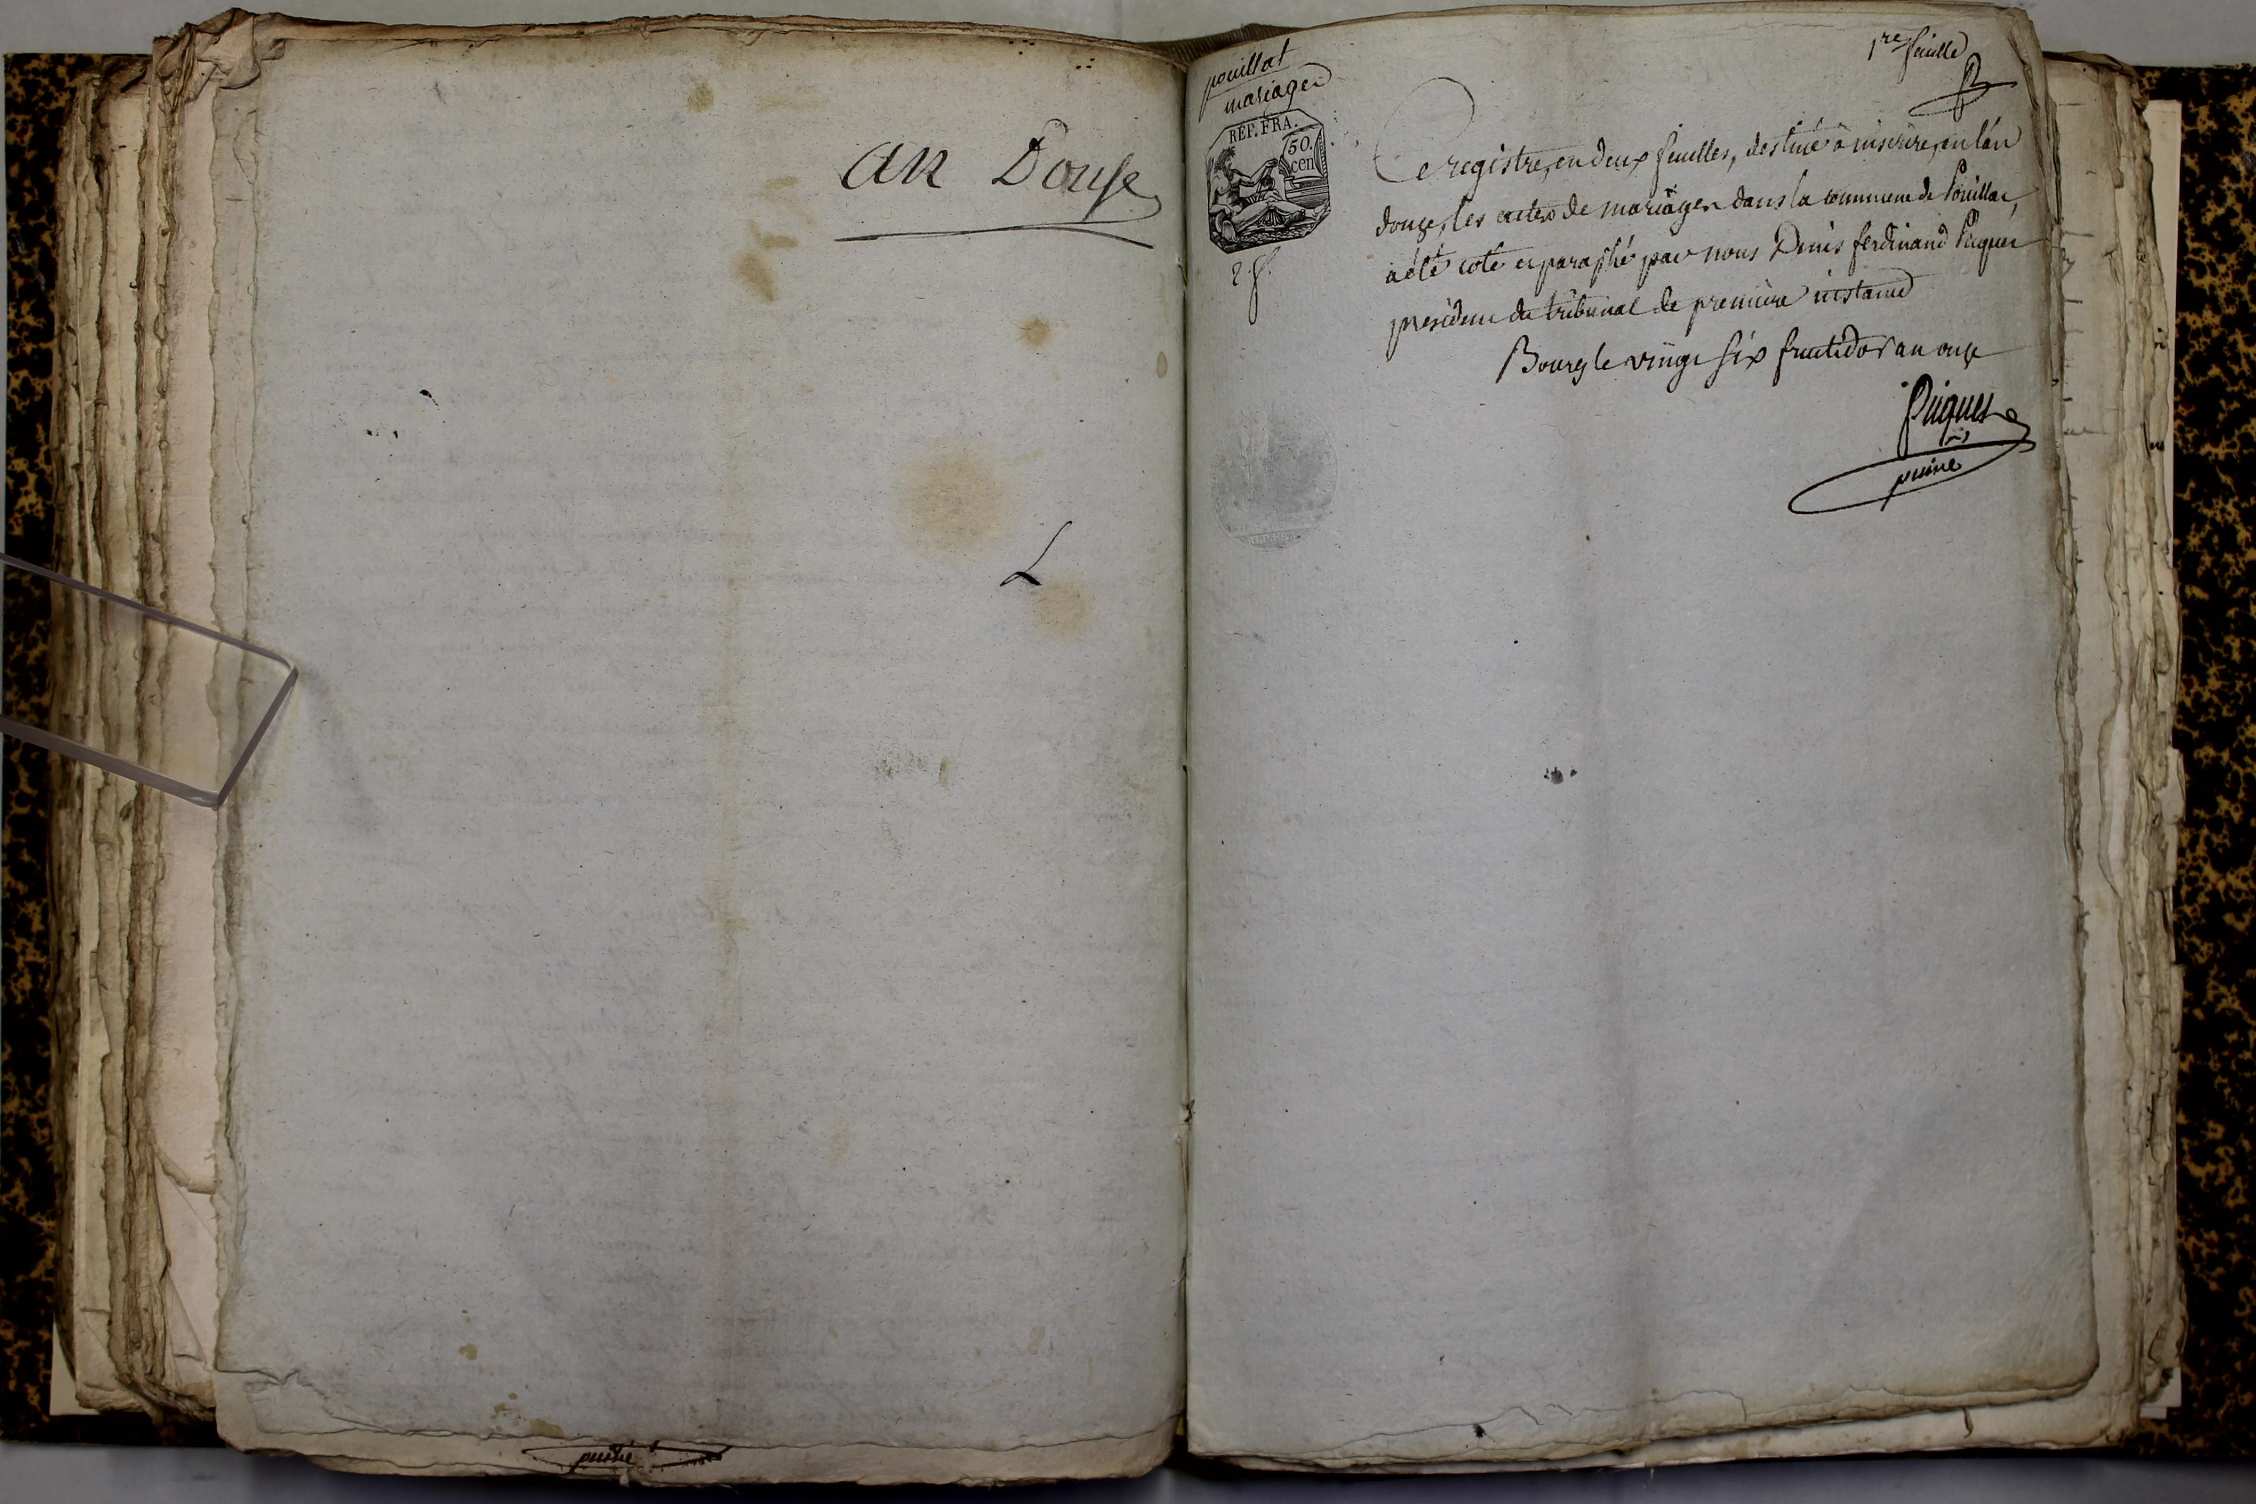 an Douze
puiné
pouillat
mariages
REP. FRA.
50.
cen
2 f.
1re feuille
Ce registre, en deux feuilles, destiné à inscrire, en l'an
douze, les actes de mariages dans la commune de Pouillat,
a été coté et paraphé par nous Denis ferdinand Piquet
président du tribunal de première instance
Bourg le vingt six fructidor an onze
Piquet
puiné